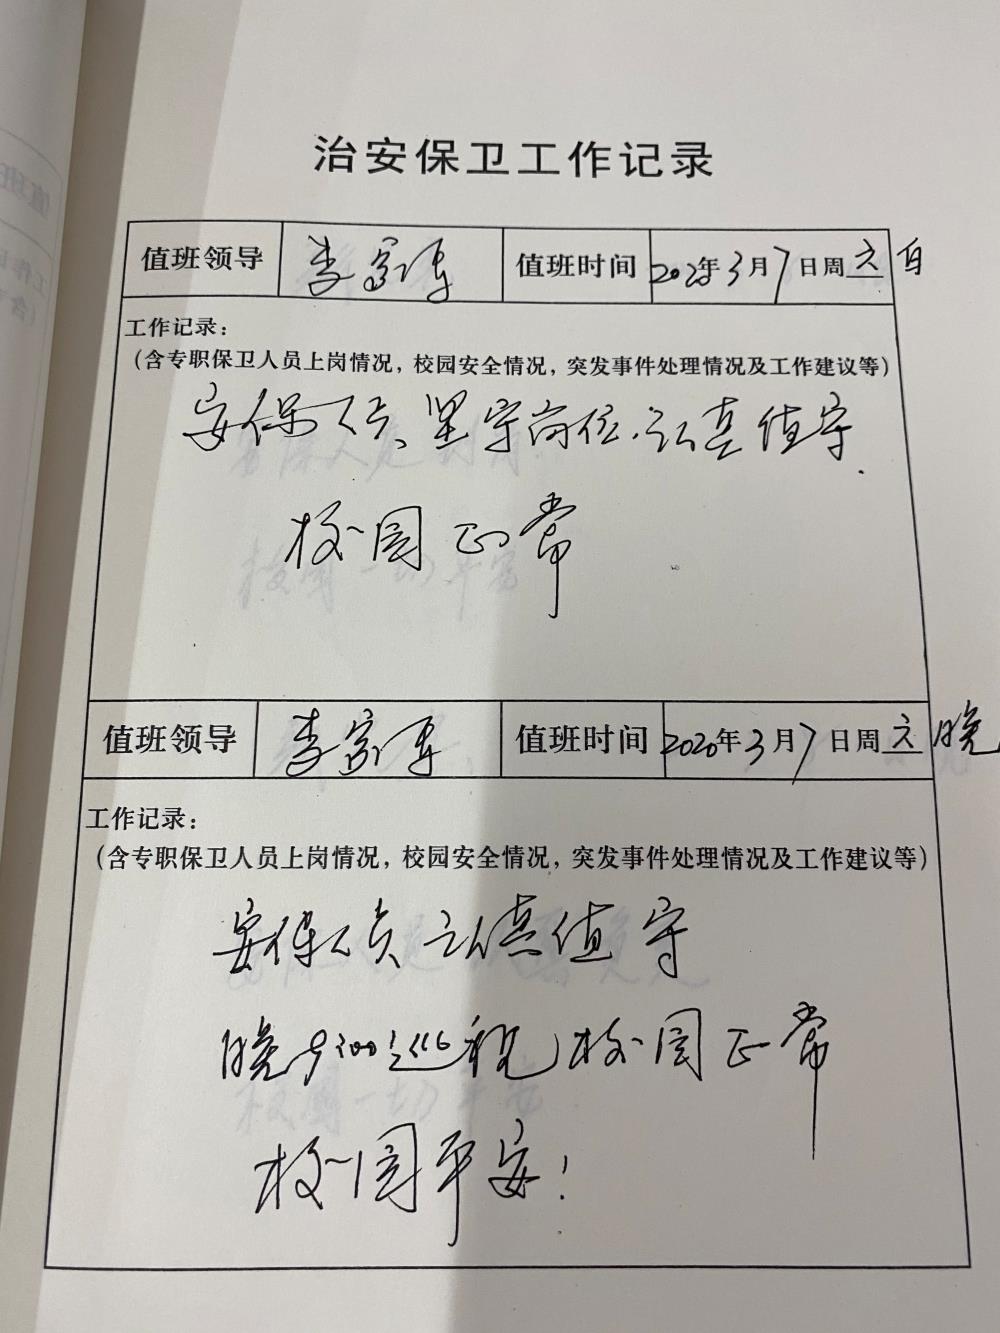 治安保卫工作记录
值班领导 李富海 值班时间 2020年3月7日周六白
工作记录：
（含专职保卫人员上岗情况，校园安全情况，突发事件处理情况及工作建议等）
安保人员、坚守岗位.认真值守.
校园正常
值班领导 李富海 值班时间 2020年3月7日周六晚
工作记录：
（含专职保卫人员上岗情况，校园安全情况，突发事件处理情况及工作建议等）
安保人员认真值守
晚9:00巡视校园正常
校园平安！